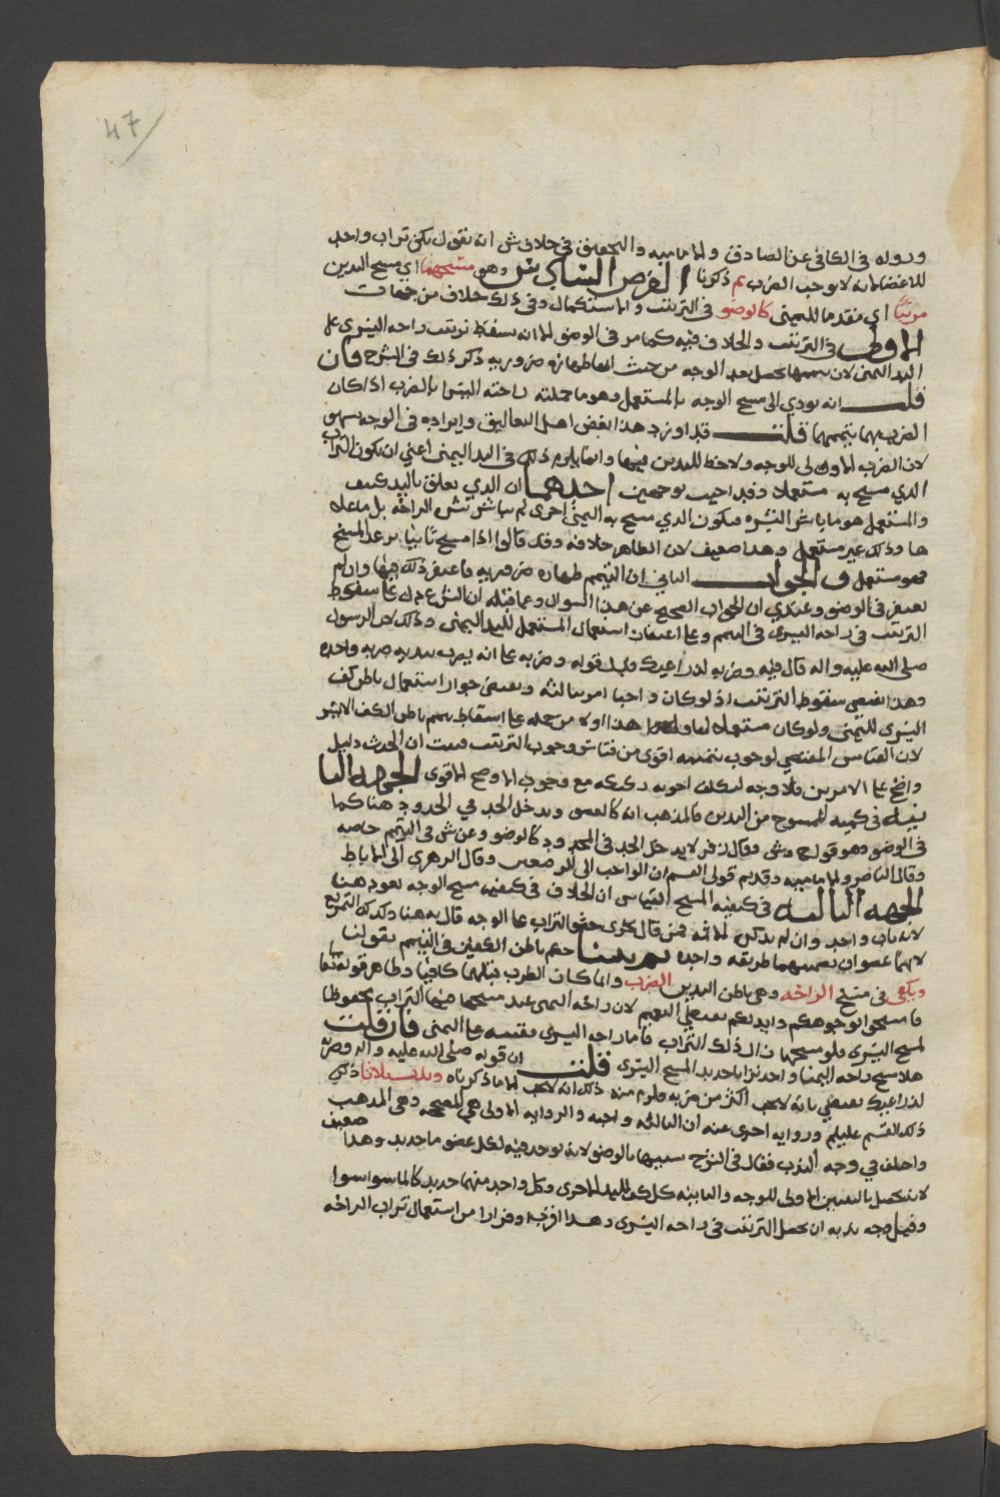 47
وروله في الكافي عن الصادق والاماميه والتحقيق في خلاف ش انه يقول يكفي تراب واحد
للاعضا لانه لا يوجب الضرب ثم ذكرنا الفرض السادس وهو مسحهما اي مسح اليدين
مرتبا اي مقدما لليمنى كالوضو في الترتيب والاستكمال وفي ذلك خلاف من جهات
الاولى في الترتيب والخلاف فيه كما مر في الوضو الا انه يسقط ترتيب راحة اليسرى على
اليد اليمنى لان يحصل بعد الوجه من حيث انها طهارة ضروريه ذكر ذلك في الشرح فان
قلت انه يودي الى مسح الوجه بالمستعمل وهو ما حملته راحته اليسرا بالضرب اذا كان
الضرب بهما يتيممهما قلت قد اورد هذا بعض اهل التعاليق وايراده في الوجه سهو
لان الضرب الاولى للوجه ولا حظ لليدين فيها وانما يلزم ذلك في اليد اليمنى اعني ان يكون التراب
الذي مسح به مستعملا وقد اجيب بوجهين احدهما ان الذي تعلق باليد كثيف
والمستعمل هو ما باشر البشره فيكون الذي مسح به اليمنى اجزى لم يباشر بشره الراحة بل ما علا
ها وذلك غير مستعمل وهذا ضعيف لان الظاهر خلافه وقد قالوا اذا مسح ثانيا
فهو مستعمل والجواب الثاني ان التيمم طهارة ضروريه فاغتفر ذلك فيها وان لم
يغتفر في الوضو وعندي ان الجواب الصحيح عن هذا السوال وعما قبله ان الشرع دل على سقوط
الترتيب في راحة اليسرى في التيمم وعلى اغتفار استعمال المستعمل لليد اليمنى وذلك لان الرسول
صلى الله عليه واله قال فيه وضربه لذراعيك فدل قوله وضربه على انه يضرب بيديه ضربه واحده
وهذا يقتضي سقوط الترتيب اذ لو كان واجبا امر بثالثة ويقتضي جواز استعمال باطن كف
اليسرى لليمنى ولو كان مستعملا هذا اولا من حمله على اسقاط تيمم باطن الكف الايسر
لان القياس المقتضي لوجوب تيممه اقوى من قياس وجوب الترتيب فثبت ان الحديث دليل
واضح على الامرين فلا وجه لتكلف اجوبه ركيكه مع وجود الاوضح الاقوى الجهه الثا
نيه في كمية الممسوح من اليدين فالمذهب انه كالغسل ويدخل الحد في المحدود هنا كما
في الوضو وهو قول ح وش وقال زفر لا يدخل الحد في المحدود كالوضو وعن ش في التيمم خاصه
وقال الناصر والاماميه وقديم قولي القسم ان الواجب الى الرصغين وقال الزهري الى الاباط
الجهه الثالثه في كيفية المسح القياس ان الخلاف في كيفية مسح الوجه يعود هنا
لانه باب واحد وان لم يذكره الائمه فمن قال يجزي حثو التراب على الوجه قال به هنا وكذلك التمريغ
لانهما عضوان تيممهما طريقه واحده ثم بينا حكم باطن الكفين في التيمم بقولنا
ويكفي في مسح الراحة وهي باطن اليدين الضرب وانما كان الضرب بباطنهما كافيا وظاهر قوله تعالى
فامسحوا بوجوهكم وايديكم يقتضي التعميم لان راحة اليمنى عند مسحها فيها التراب محفوظا
لمسح اليسرى فلو مسحها زال ذلك التراب فاما راحة اليسرى فمقيسه على اليمنى فان قلت
هلا مسح راحة اليمنا واحد ترابا جديدا لمسح اليسرى قلت ان قوله صلى الله عليه واله وضربه
لذراعيك يقتضي بانه لا يجب اكثر من ضربه ولزم منه ذلك انه لا يجب الا ما ذكرناه وندب ثلاثا ذكر
ذلك القسم عليلم وروايه اخرى عنه ان الثالثه واجبه والروايه الاولى هي الصحيحه وهي المذهب
واختلف في وجه الندب فقال في الشرح تشبيها بالوضو لانه يوخذ فيه لكل عضو ما جديد وهذا ضعيف
لانه يحصل بالضربتين الاولى للوجه والثانيه كل كف لليد الاخرى وكل واحد منهما جديد كالما سوا سوا
وقيل وجه ندبه ان يحصل الترتيب في راحة اليسرى وهذا اقربه وفرارا من استعمال تراب الراحة